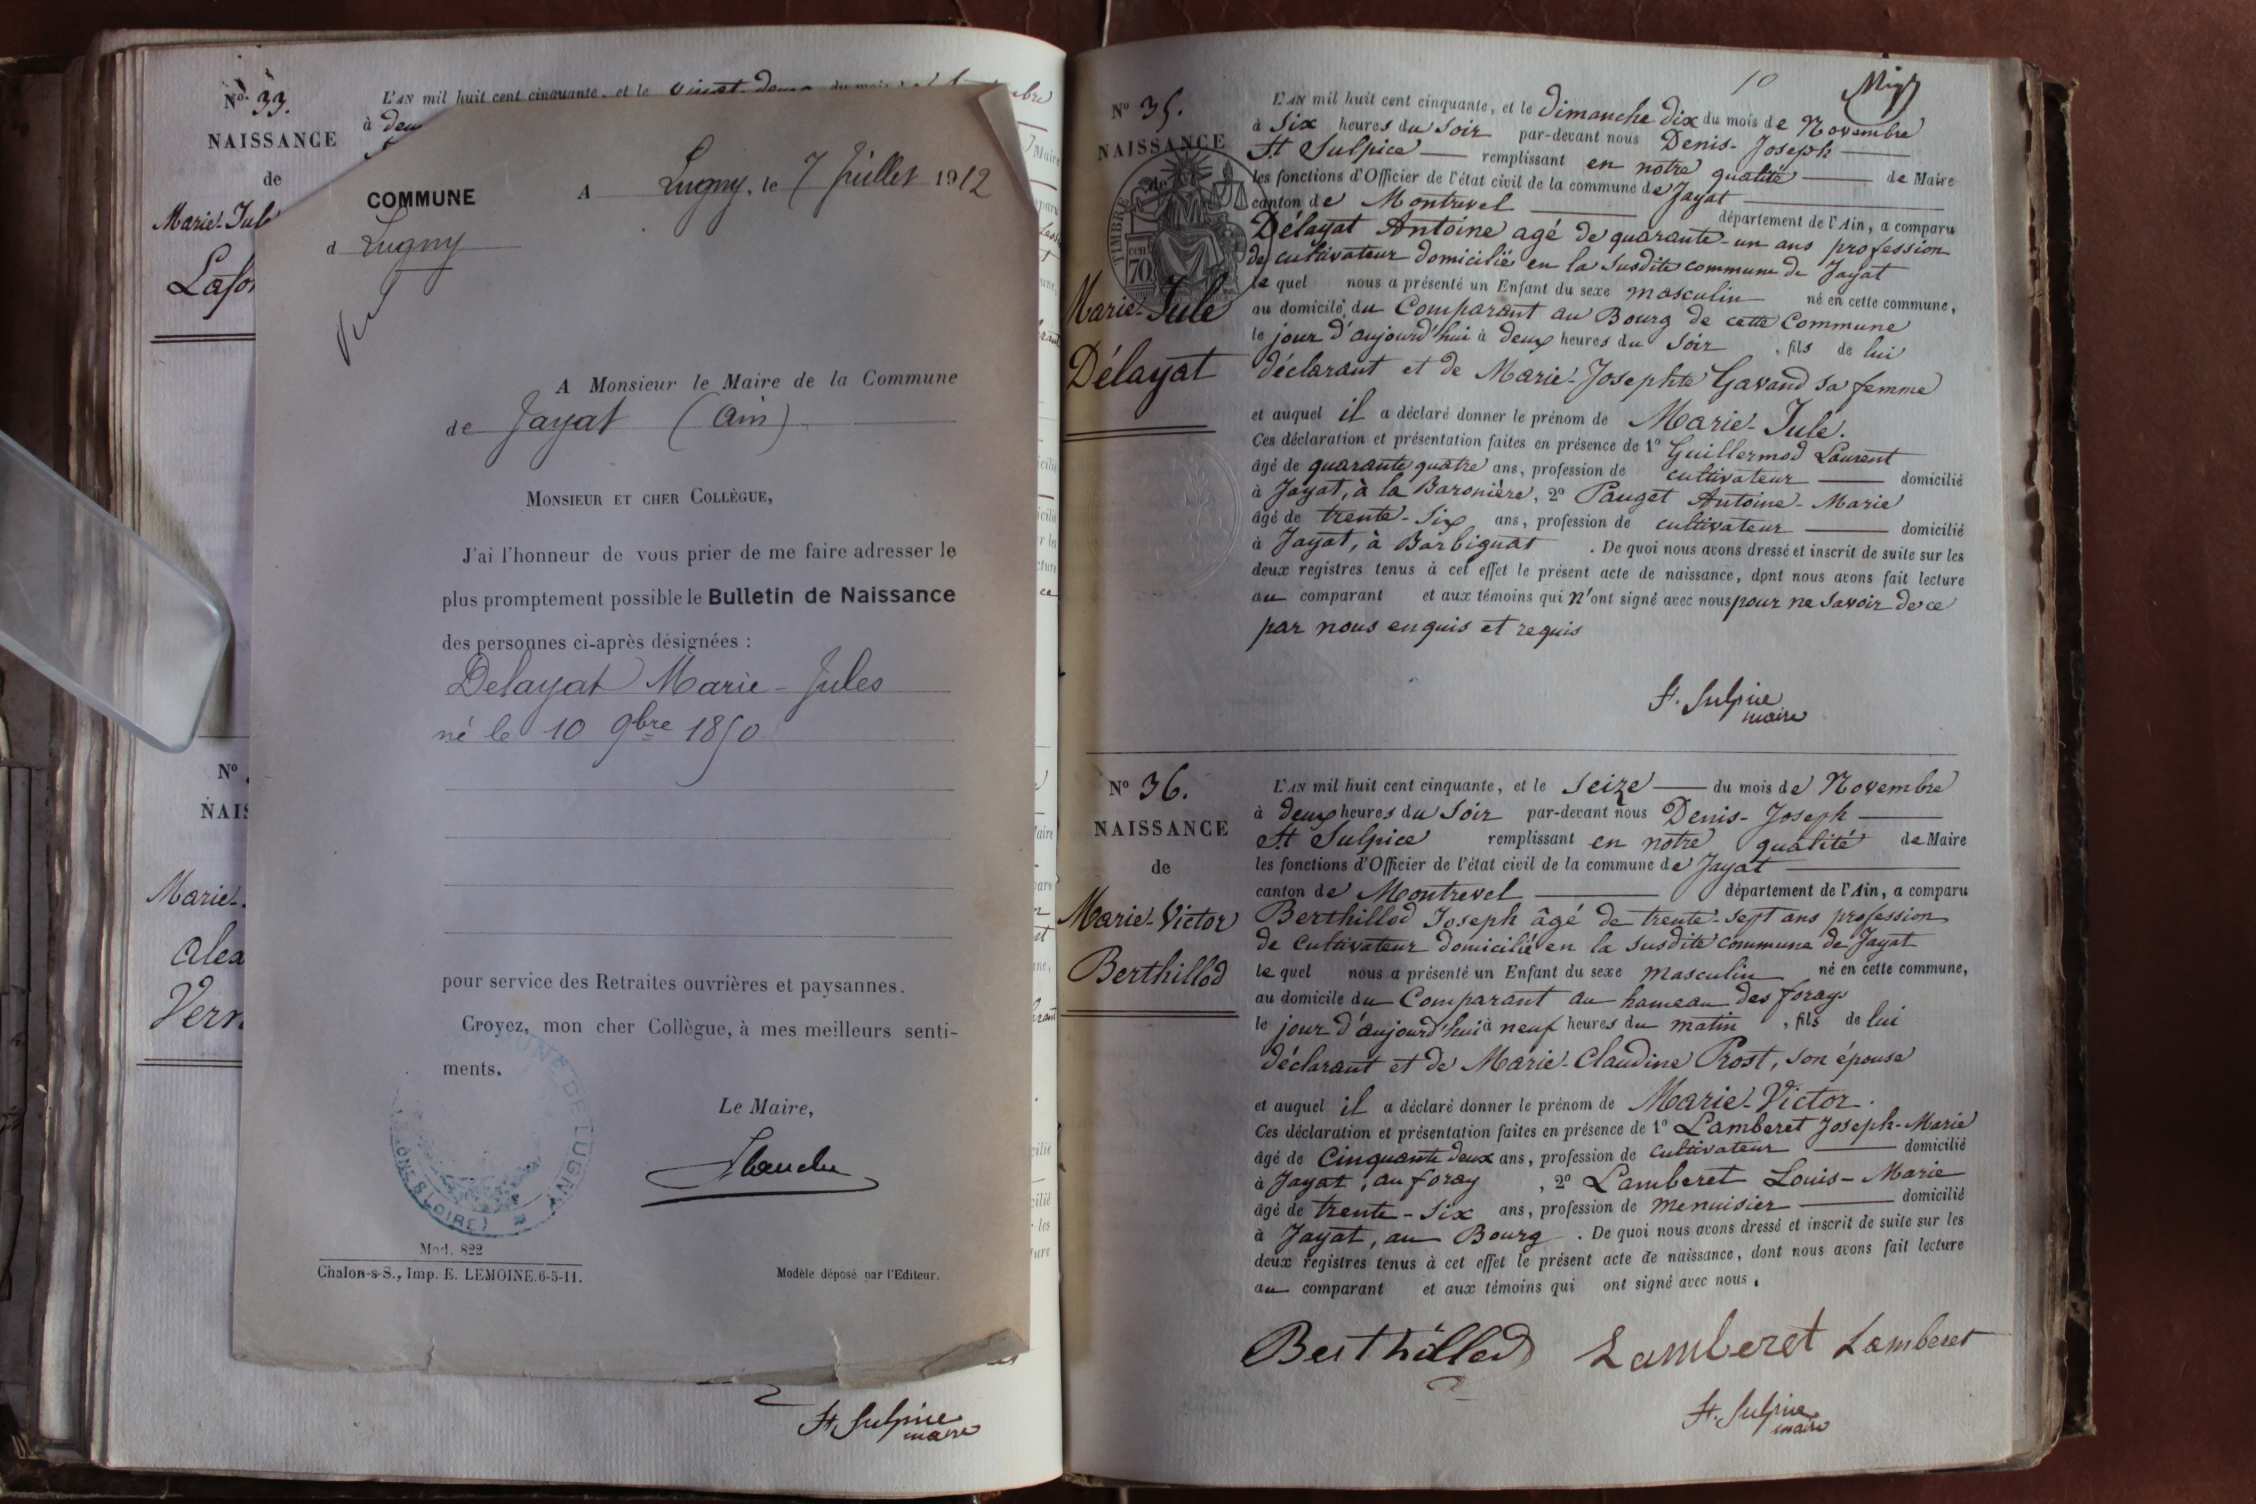 No. 33.
NAISSANCE
de
Marie-Jul
Lafon
L'AN mil huit cent cinquante, et le vingt-deux du mois
à deux
COMMUNE
d Lugny
A Lugny, le 7 Juillet 1912
Vu
A Monsieur le Maire de la Commune
de Jayat (Ain)
MONSIEUR ET CHER COLLÈGUE,
J'ai l'honneur de vous prier de me faire adresser le
plus promptement possible le Bulletin de Naissance
des personnes ci-après désignées :
Delayat Marie-Jules
né le 10 9bre 1850
pour service des Retraites ouvrières et paysannes.
Croyez, mon cher Collègue, à mes meilleurs senti-
ments.
Le Maire,
COMMUNE DE LUGNY
(SAONE & LOIRE)
Mod. 822
Chalon-s-S., Imp. E. LEMOINE.6-5-11.
Modèle déposé par l'Editeur.
No
NAIS
Marie-
Alex
Vern
St. Sulpice
maire
10
No 35.
NAISSANCE
de
TIMBRE
CEN
70
Marie-Jule
Délayat
L'AN mil huit cent cinquante, et le Dimanche dix du mois de Novembre
à Six heures du Soir par-devant nous Denis-Joseph
St Sulpice remplissant en notre qualité de Maire
les fonctions d'Officier de l'état civil de la commune de Jayat
canton de Montrevel département de l'Ain, a comparu
Délayat Antoine agé de quarante-un ans profession
de cultivateur domicilié en la susdite commune de Jayat
le quel nous a présenté un Enfant du sexe masculin né en cette commune,
au domicile du Comparant au Bourg de cette Commune
le jour d'aujourd'hui à deux heures du Soir, fils de lui
déclarant et de Marie-Josephte Gavand sa femme
et auquel il a déclaré donner le prénom de Marie-Jule.
Ces déclaration et présentation faites en présence de 1o Guillermod Laurent
âgé de quarante quatre ans, profession de cultivateur domicilié
à Jayat, à la Baronière, 2o Pauget Antoine-Marie
âgé de trente-Six ans, profession de cultivateur domicilié
à Jayat, à Barbignat. De quoi nous avons dressé et inscrit de suite sur les
deux registres tenus à cet effet le présent acte de naissance, dont nous avons fait lecture
au comparant et aux témoins qui n'ont signé avec nous pour ne savoir de ce
par nous enquis et requis
St. Sulpice
maire
No 36.
NAISSANCE
de
Marie-Victor
Berthillod
L'AN mil huit cent cinquante, et le seize du mois de Novembre
à deux heures du Soir par-devant nous Denis-Joseph
St Sulpice remplissant en notre qualité de Maire
les fonctions d'Officier de l'état civil de la commune de Jayat
canton de Montrevel département de l'Ain, a comparu
Berthillod Joseph âgé de trente-sept ans profession
de Cultivateur domicilié en la susdite commune de Jayat
le quel nous a présenté un Enfant du sexe masculin né en cette commune,
au domicile du Comparant au hameau des forays
le jour d'aujourd'hui à neuf heures du matin, fils de lui
déclarant et de Marie-Claudine Prost, son épouse
et auquel il a déclaré donner le prénom de Marie-Victor.
Ces déclaration et présentation faites en présence de 1o Lamberet Joseph-Marie
âgé de Cinquante deux ans, profession de Cultivateur domicilié
à Jayat, au foray, 2o Lamberet Louis-Marie
âgé de trente-six ans, profession de menuisier domicilié
à Jayat, au Bourg. De quoi nous avons dressé et inscrit de suite sur les
deux registres tenus à cet effet le présent acte de naissance, dont nous avons fait lecture
au comparant et aux témoins qui ont signé avec nous.
Berthillod Lamberet Lamberet
St. Sulpice
maire